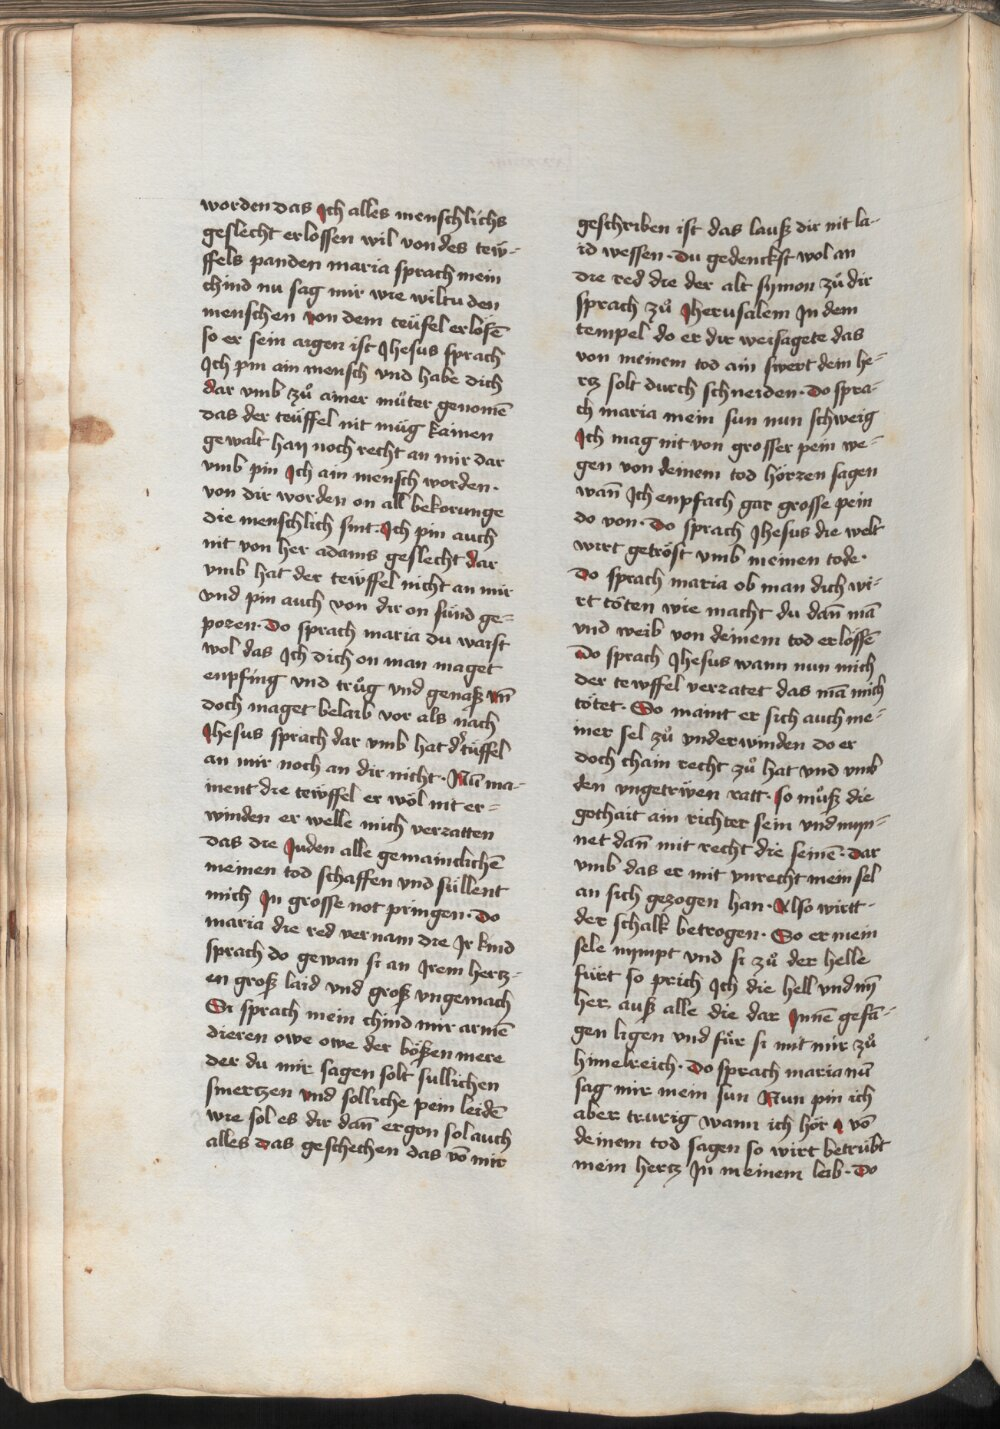 worden das Ich alles menschlichs
geslecht erlossen wil von des tew-
ffels panden maria sprach mein
chind nu sag mir wie wiltu den
menschen von dem teüfel erlösē
so er sein aigen ist Jhesus sprach
Ich pin ain mensch vnd habe dich
dar vmb zů ainer můter genomē
das der teüffel nit müg kainen
gewalt han noch recht an mir dar
vmb pin Ich ain mensch worden·
von dir worden on all bekorunge
die menschlich sint· Ich pin auch
nit von her adams geslecht dar
vmb hat der tewffel nicht an mir
vnd pin auch von dir on sünd ge=
poren· Do sprach maria du waist
wol das Ich dich on man maget
enpfing vnd trůg vnd genaß vn̄
doch maget belaib vor als nach
Jhesus sprach dar vmb hat d' tüffel
an mir noch an dir nicht· Nun ma-
inent die tewffel er wöl nit er=
winden er welle mich verratten
das die Juden alle gemainclichē
meinen tod schaffen vnd süllent
mich Jn grosse not pringen· Do
maria die red vernam die Jr kind
sprach do gewan si an Jrem hertz-
en groß laid vnd groß vngemach
Si sprach mein chind mir armē
dieren owe owe der bößen mere
der du mir sagen solt sullichen
smertzen vnd solliche pein leidē
wie sol es dir dan̄ ergon sol auch
alles das geschechen das vō mir
geschriben ist das lauß dir nit la-
id wessen· du gedenckst wol an
die red die der alt symon zů dir
sprach zů Jherusalem Jn dem
tempel do er dir weisagete das
von meinem tod ain swert dein he=
rtz solt durch schneiden· Do spra-
ch maria mein sun nun schweig
Ich mag nit von grosser pein we=
gen von deinem tod hörren sagen
wan̄ Ich enpfach gar grosse pein
do von· Do sprach Jhesus die welt
wirt getröst vmb meinen tode·
Do sprach maria ob man dich wi-
rt töten wie macht du dan̄ mā
vnd weib von deinem tod erlössē
Do sprach Jhesus wann nun mich
der tewffel verratet das mā mich
tötet· So maint er sich auch me=
iner sel zů vnderwinden do er
doch chain recht zů hat vnd vmb
den vngetrewen ratt· so můß die
gothait ain richter sein vnd nym=
net dan̄ mit recht die seinē· Dar
vmb das er mit vnrecht mein sel
an sich gezogen han· Also wirtt
der schalk betrogen· So er mein
sele nympt vnd si zů der helle
fürt so prich Ich die hell vnd nȳ
her auß alle die dar Jnnē gefā-
gen ligen vnd für si mit mir zů
himelreich· Do sprach maria nū
sag mir mein sun Nun pin ich
aber trurig wann ich hör vō
deinem tod sagen so wirt betrübt
mein hertz Jn meinem leib· Do